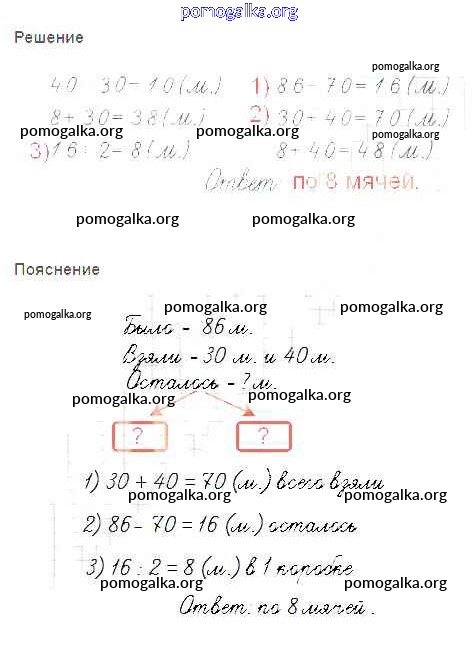 pomogalka.org
Решение
pomogalka.org
40 30 - 10 (м.) 1) 86 - 70 = 16 (м.)
8 + 30 = 38 (м.) 2) 30 + 40 = 70 (м.)
pomogalka.org pomogalka.org pomogalka.org
3) 16 : 2 = 8 (м.) 8 + 40 = 48 (м.)
Ответ: по 8 мячей.
pomogalka.org pomogalka.org
Пояснение
pomogalka.org pomogalka.org pomogalka.org
Было - 86 м.
Взяли - 30 м. и 40 м.
Осталось - ? м.
pomogalka.org pomogalka.org
? ?
1) 30 + 40 = 70 (м.) всего взяли
pomogalka.org pomogalka.org
2) 86 - 70 = 16 (м.) осталось
3) 16 : 2 = 8 (м.) в 1 коробке
pomogalka.org pomogalka.org
Ответ: по 8 мячей.